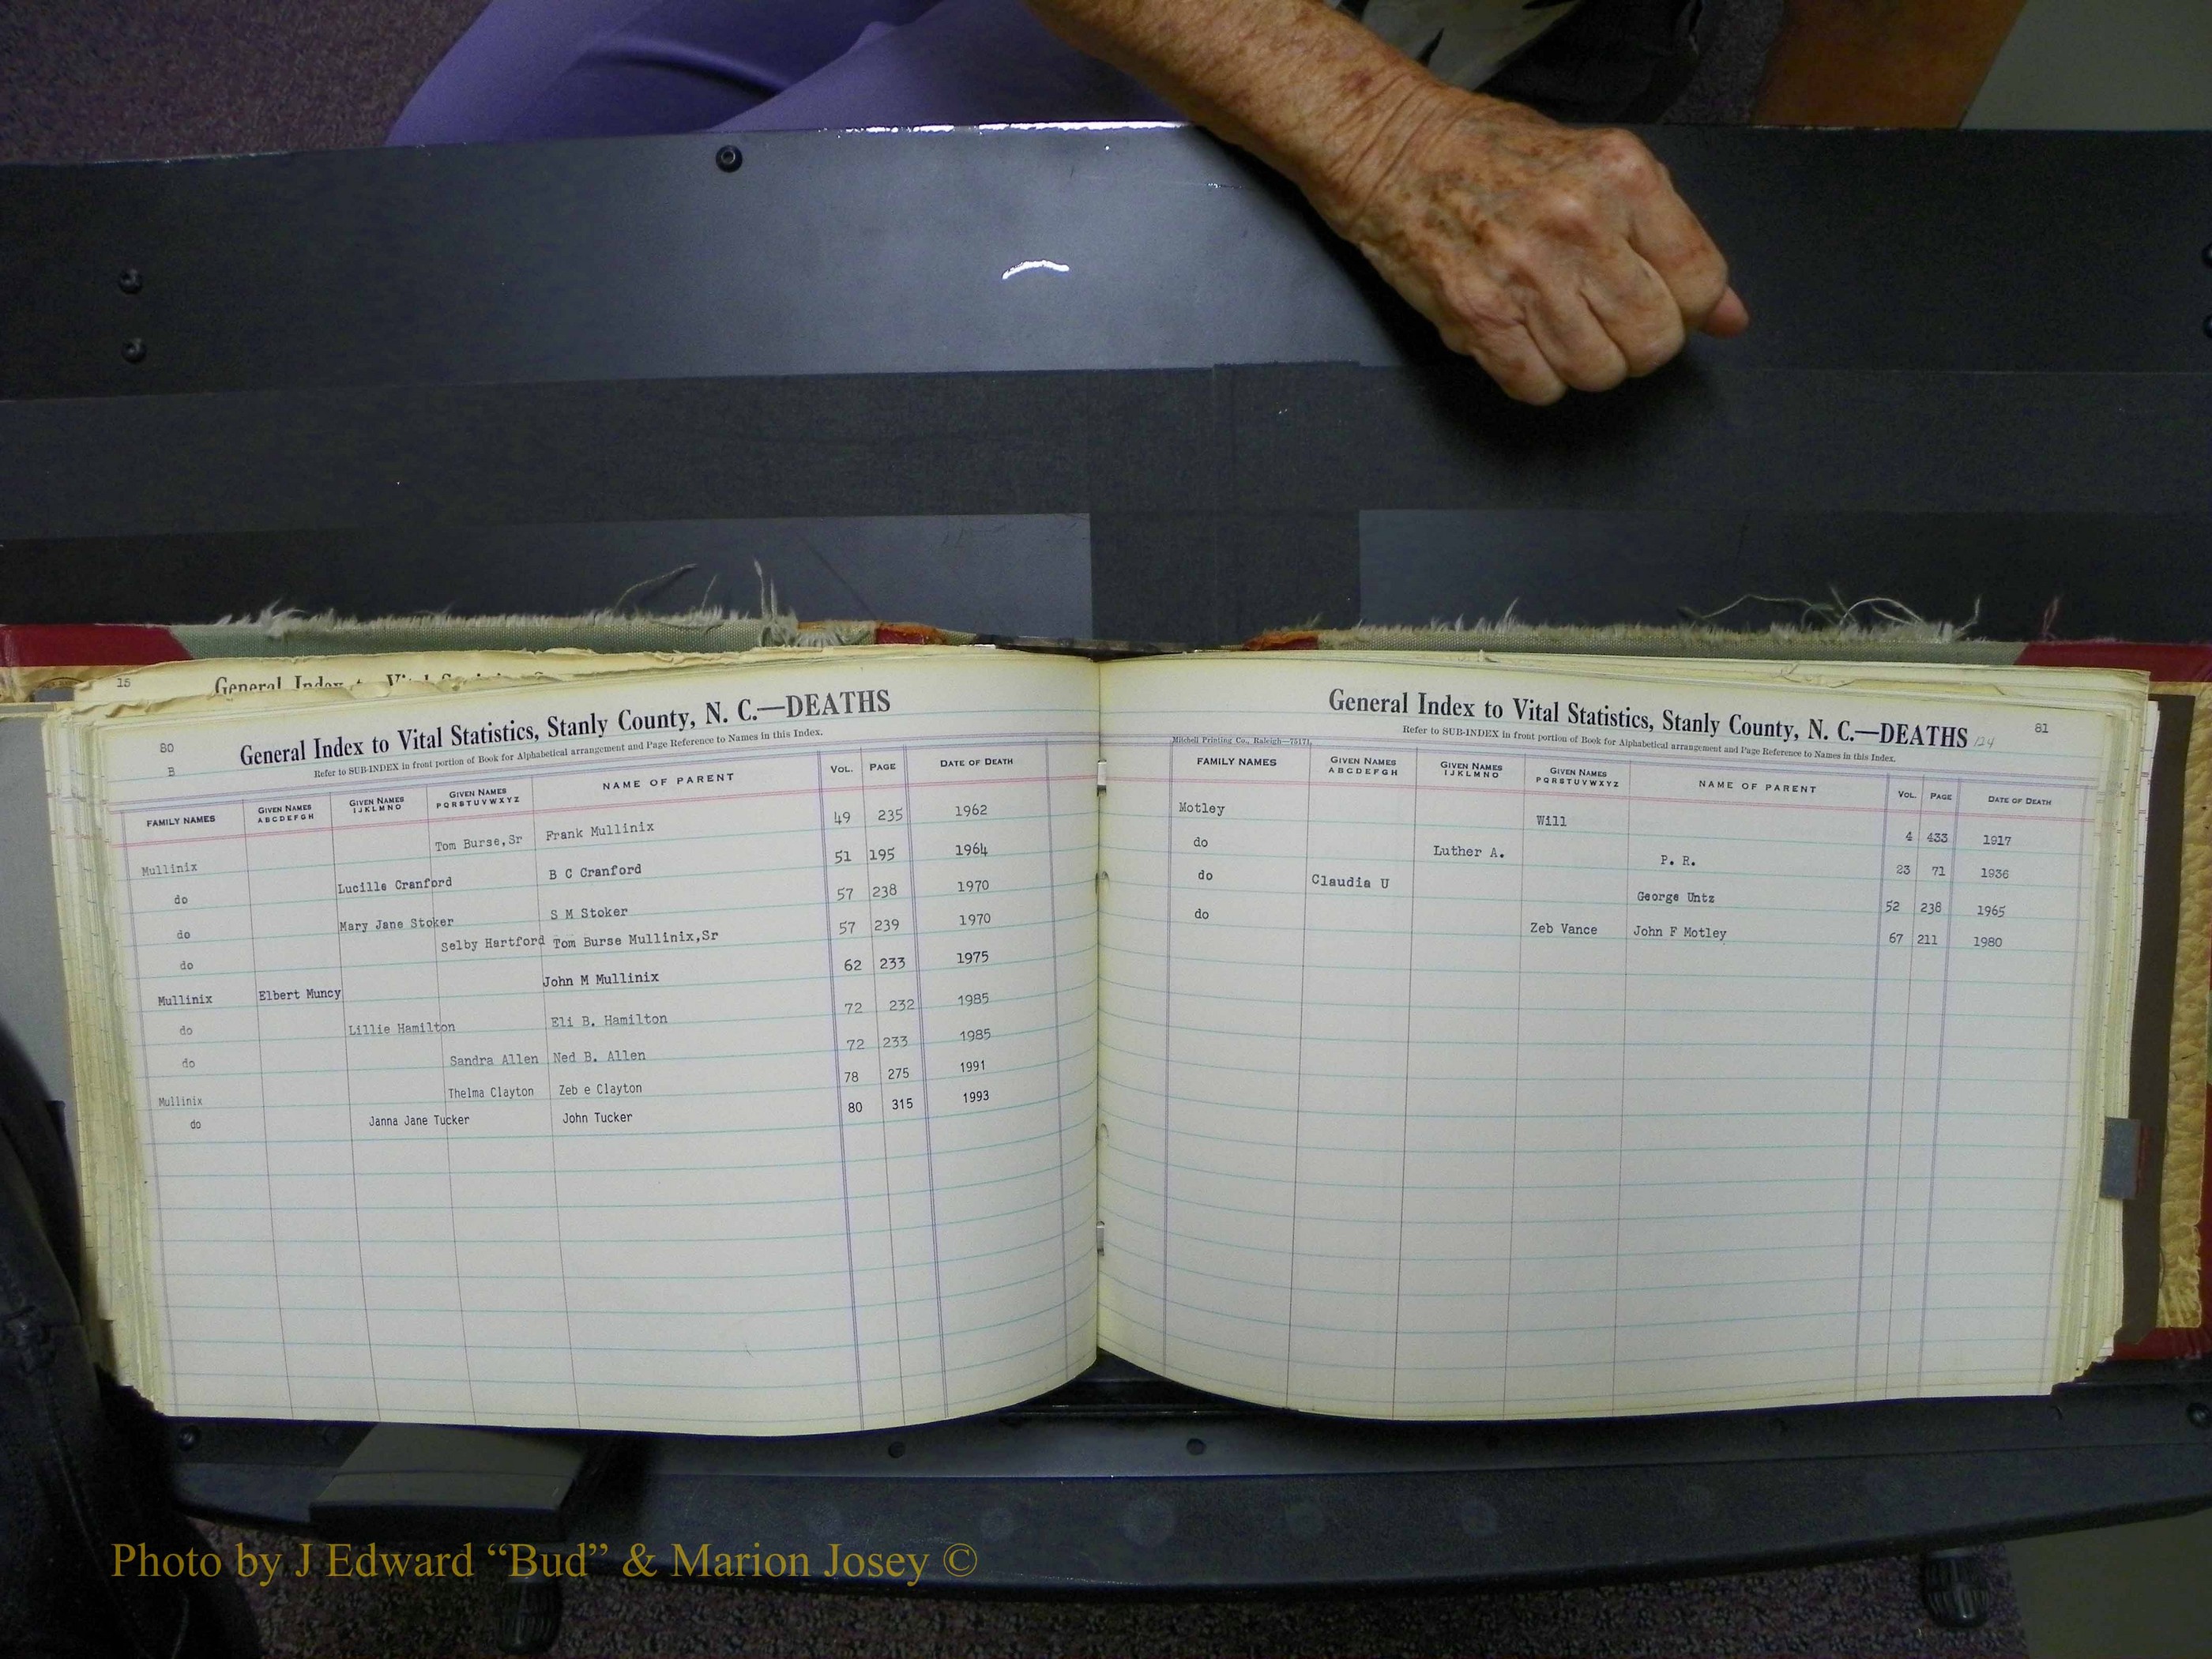 15
General Index to Vital Statistics
80
B
General Index to Vital Statistics, Stanly County, N. C.—DEATHS
Refer to SUB-INDEX in front portion of Book for Alphabetical arrangement and Page Reference to Names in this Index.
FAMILY NAMES GIVEN NAMES ABCDEFGH GIVEN NAMES IJKLMNO GIVEN NAMES PQRSTUVWXYZ NAME OF PARENT VOL. PAGE DATE OF DEATH
Mullinix Tom Burse,Sr Frank Mullinix 49 235 1962
do Lucille Cranford B C Cranford 51 195 1964
do Mary Jane Stoker S M Stoker 57 238 1970
do Selby Hartford Tom Burse Mullinix,Sr 57 239 1970
Mullinix Elbert Muncy John M Mullinix 62 233 1975
do Lillie Hamilton Eli B. Hamilton 72 232 1985
do Sandra Allen Ned B. Allen 72 233 1985
Mullinix Thelma Clayton Zeb e Clayton 78 275 1991
do Janna Jane Tucker John Tucker 80 315 1993
General Index to Vital Statistics, Stanly County, N. C.—DEATHS 124
81
Refer to SUB-INDEX in front portion of Book for Alphabetical arrangement and Page Reference to Names in this Index.
Mitchell Printing Co., Raleigh—75171
FAMILY NAMES GIVEN NAMES ABCDEFGH GIVEN NAMES IJKLMNO GIVEN NAMES PQRSTUVWXYZ NAME OF PARENT VOL. PAGE DATE OF DEATH
Motley Will 4 433 1917
do Luther A. P. R. 23 71 1936
do Claudia U George Untz 52 238 1965
do Zeb Vance John F Motley 67 211 1980
Photo by J Edward “Bud” & Marion Josey ©